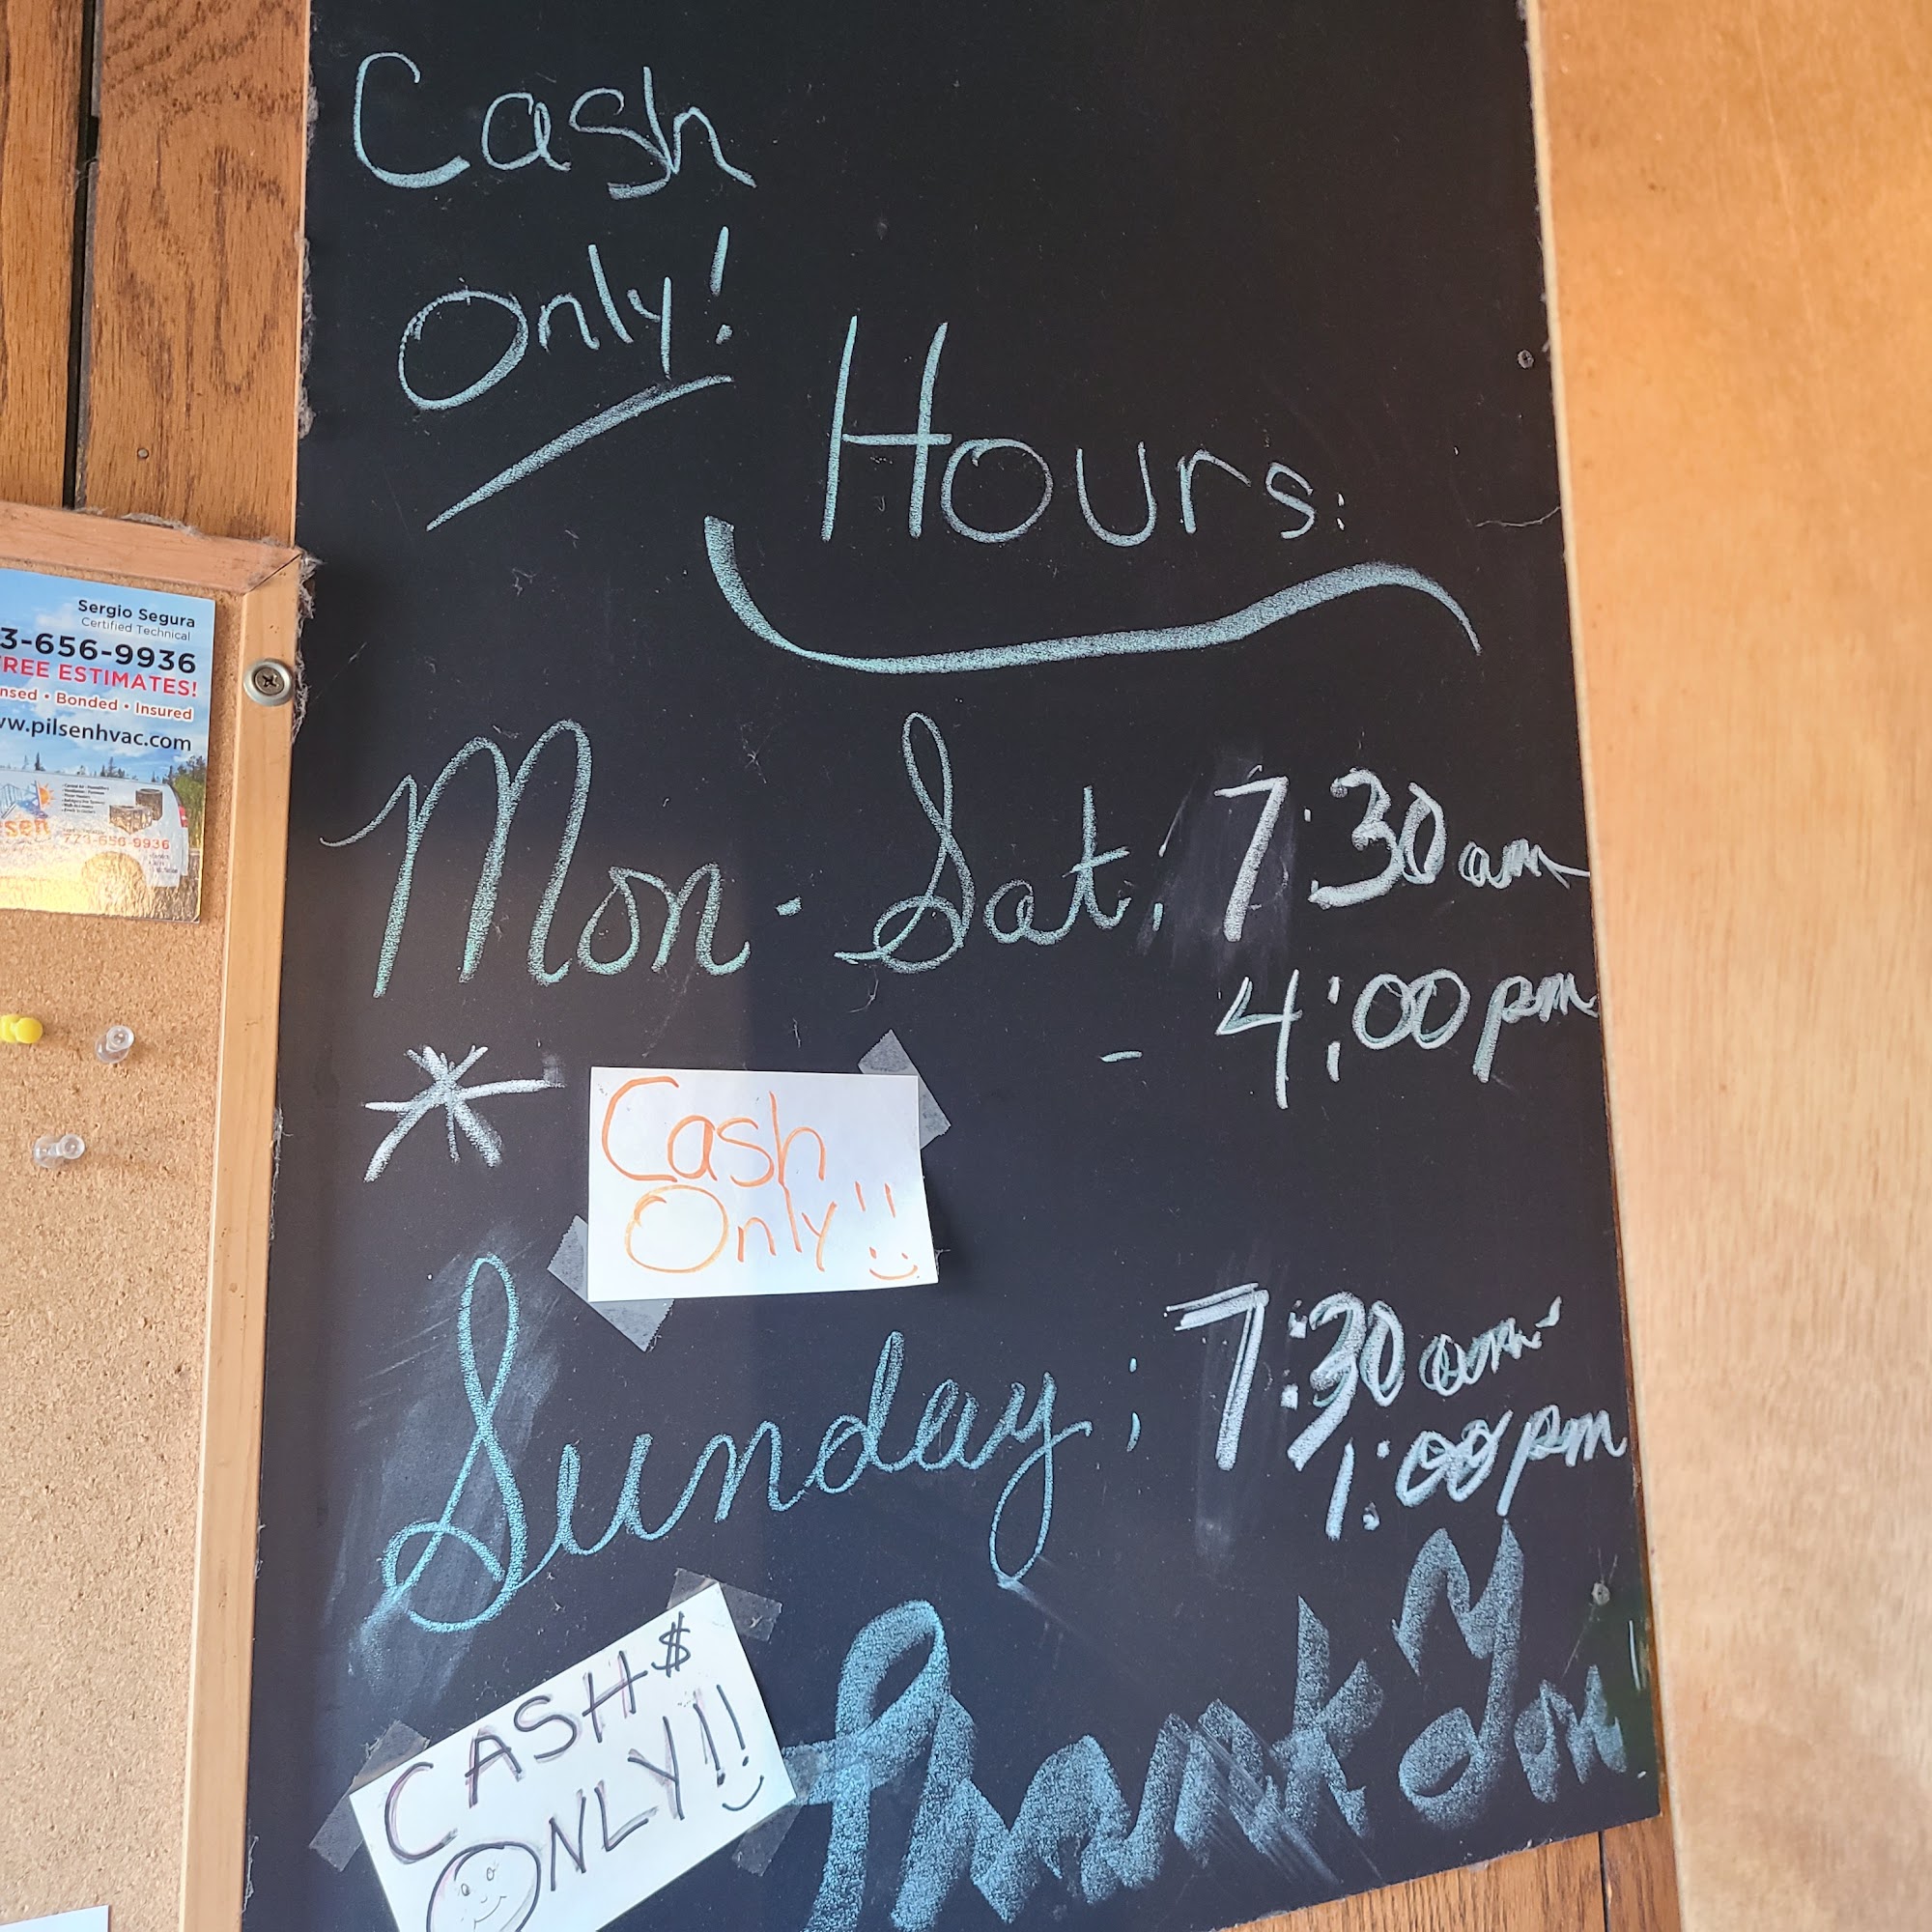 Cash
Only!
Hours:
Mon - Sat: 7:30am
- 4:00pm
*
Cash
Only!!
Sunday: 7:30am-
1:00pm
CASH$
ONLY!!
Thank You
Sergio Segura
Certified Technical
3-656-9936
REE ESTIMATES!
nsed • Bonded • Insured
w.pilsenhvac.com
sen
773-656-9936